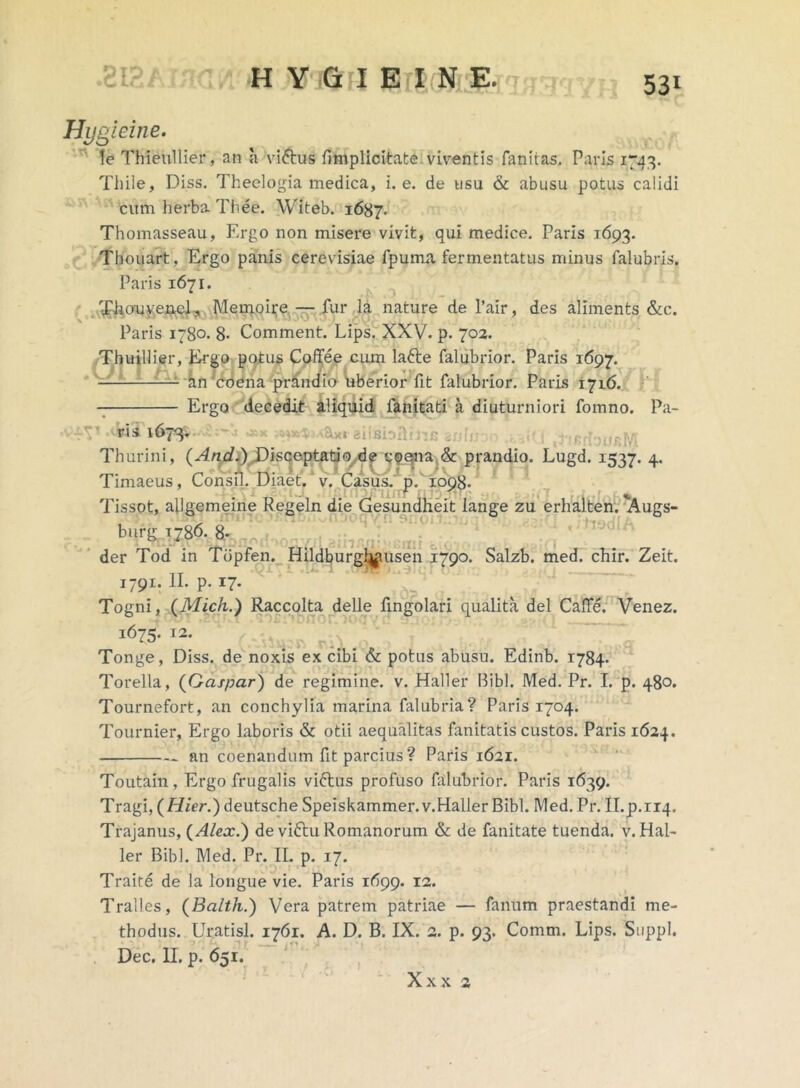 HYGIEINE. 531
Hygieine.
le Thieullier, an à victus ſimplicitate viventis ſanitas. Paris 1743.
Thile, Diss. Theelogia medica, i. e. de usu & abusu potus calidi
cum herba Thée. Witeb. 1687.
Thomasseau, Ergo non misere vivit, qui medice. Paris 1693.
Thouart, Ergo panis cerevisiae ſpuma fermentatus minus ſalubris.
Paris 1671.
Thouvenel, Memoire — ſur la nature de l'air, des aliments &c.
Paris 1780. 8. Comment. Lips. XXV. p. 702.
Thuillier, Ergo potus Coffée cum lacte ſalubrior. Paris 1697.
——— an coena prandio uberior ſit ſalubrior. Paris 1716.
——— Ergo decedit aliquid ſanitati à diuturniori ſomno. Pa-
ris 1673.
Thurini, (And.) Disceptatio de coena & prandio. Lugd. 1537. 4.
Timaeus, Consil. Diaet. v. Casus. p. 1098.
Tissot, allgemeine Regeln die Gesundheit lange zu erhalten. Augs-
burg 1786. 8.
der Tod in Töpfen. Hildburghausen 1790. Salzb. med. chir. Zeit.
1791. II. p. 17.
Togni, (Mich.) Raccolta delle ſingolari qualità del Caffé. Venez.
1675. 12.
Tonge, Diss. de noxis ex cibi & potus abusu. Edinb. 1784.
Torella, (Gaspar) de regimine. v. Haller Bibl. Med. Pr. I. p. 480.
Tournefort, an conchylia marina ſalubria? Paris 1704.
Tournier, Ergo laboris & otii aequalitas ſanitatis custos. Paris 1624.
——— an coenandum ſit parcius? Paris 1621.
Toutain, Ergo frugalis victus profuso ſalubrior. Paris 1639.
Tragi, (Hier.) deutsche Speiskammer. v. Haller Bibl. Med. Pr. II. p. 114.
Trajanus, (Alex.) de victu Romanorum & de ſanitate tuenda. v. Hal-
ler Bibl. Med. Pr. II. p. 17.
Traité de la longue vie. Paris 1699. 12.
Tralles, (Balth.) Vera patrem patriae — ſanum praestandi me-
thodus. Uratisl. 1761. A. D. B. IX. 2. p. 93. Comm. Lips. Suppl.
Dec. II. p. 651.
Xxx 2